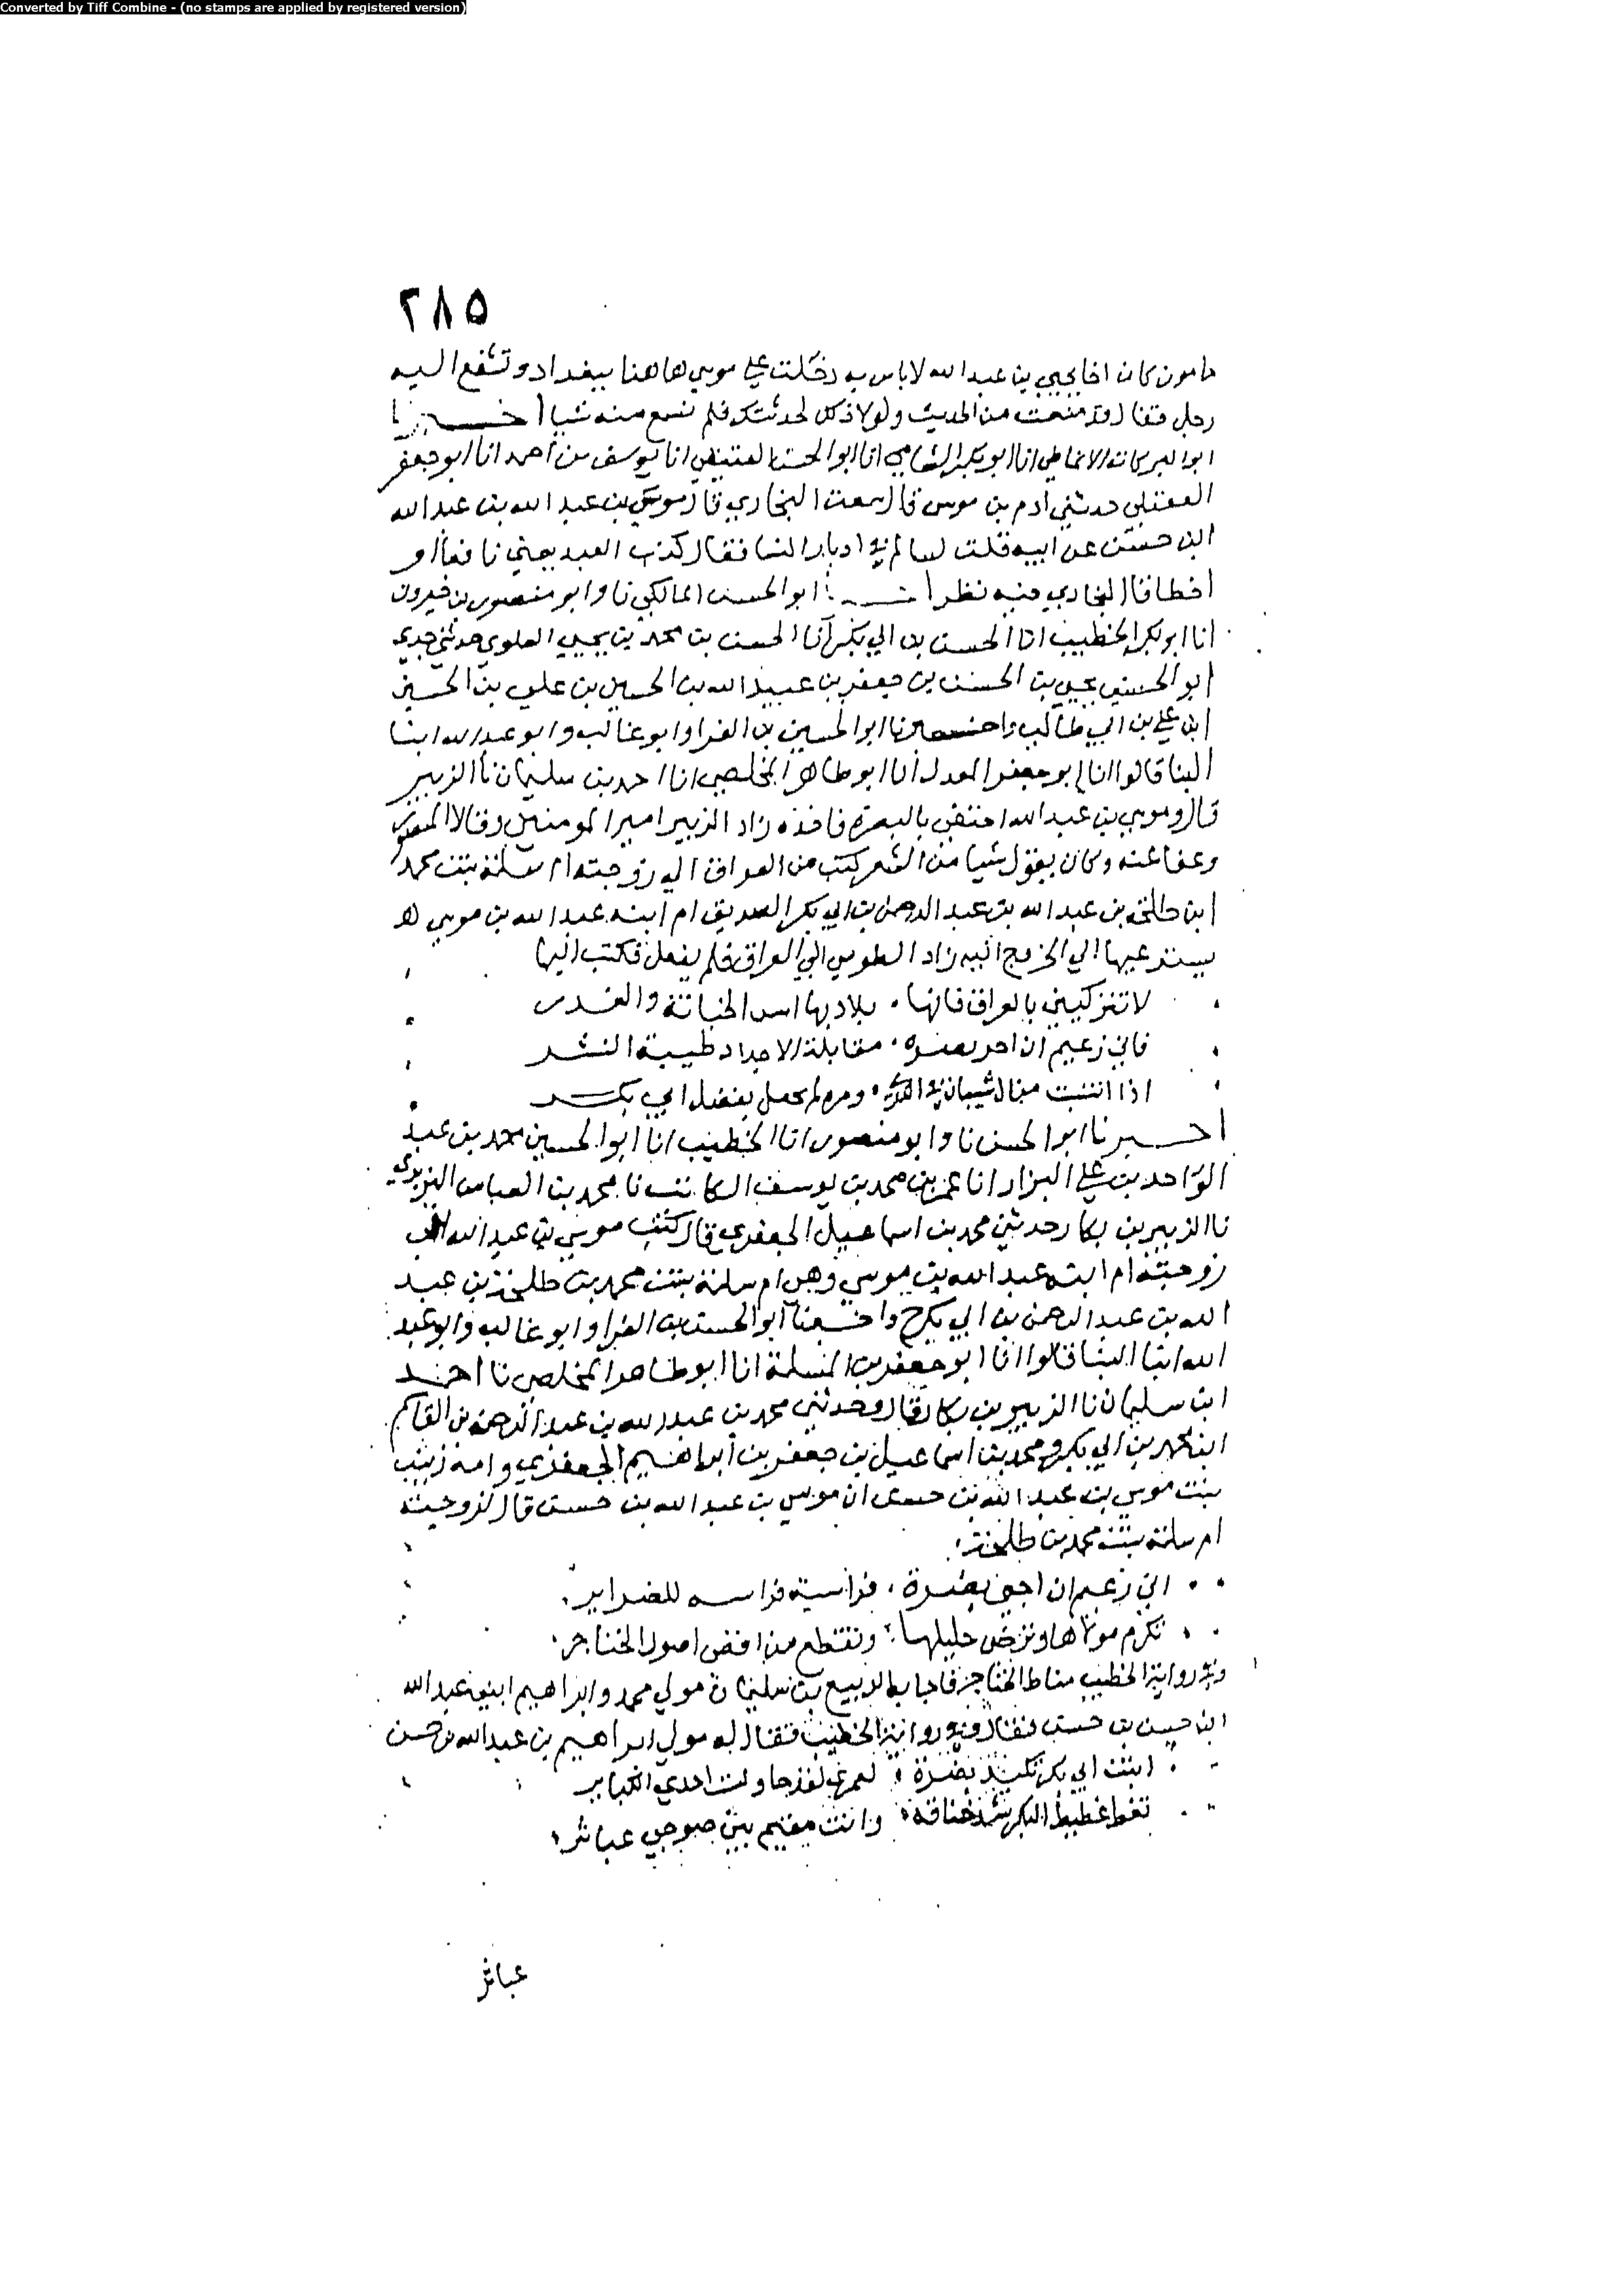 Converted by Tiff Combine - (no stamps are applied by registered version)
٢٨٥
مامون كان اخا يحيى بن عبد الله لا باس به دخلت على موسى هاهنا ببغداد وتشفع اليه
رجل فقال قد منعت من الحديث ولولا ذلك لحدثتك فلم نسمع منه شيا اخبرنا
ابو البركات الانماطي انا ابو بكر الشامي انا ابو الحسن العتيقي انا يوسف بن احمد انا ابو جعفر
العقيلي حدثني ادم بن موسى قال سمعت البخاري قال موسى بن عبد الله بن عبد الله
ابن حسن عن ابيه قلت لسالم في ادبار النسا فقال كذب العبد يعني نافعا او
اخطا قال البخاري فيه نظر ابو الحسن المالكي نا وابو منصور بن خيرون
انا ابو بكر الخطيب انا الحسن بن ابي بكر انا الحسن بن محمد بن يحيى العلوي حدثني جدي
ابو الحسين يحيى بن الحسن بن جعفر بن عبيد الله بن الحسين بن علي بن الحسين
ابن علي بن ابي طالب واخبرنا ابو الحسين بن الفرا وابو غالب وابو عبد الله ابنا
البنا قالوا انا ابو جعفر المعدل انا ابو طاهر المخلص انا احمد بن سليمان نا الزبير
قال وموسى بن عبد الله اختفى بالبصرة فاخذه زاد الزبير امير المومنين وقالا المنصور
وعفا عنه وكان يقول شيا من الشعر كتب من العراق الى زوجته ام سلمة بنت محمد
ابن طلحة بن عبد الله بن عبد الرحمن بن ابي بكر الصديق ام ابنه عبد الله بن موسى
يستدعيها الى الخروج اليه زاد الطوسي الى العراق فلم يفعل فكتب اليها
لا تتركيني بالعراق فانها بلاد بها اس الخيانة والغدر
فاني زعيم ان اجي بضرة مقابلة الاجداد طيبة النشر
اذا انتسبت من ال شيبان في ومرة لم تحمل بفضل ابي بكر
اخبرنا ابو الحسن نا وابو منصور انا الخطيب انا ابو الحسين محمد بن عبد
الواحد بن علي البزار انا عمر بن محمد بن يوسف الكاتب نا محمد بن العباس اليزيدي
نا الزبير بن بكار حدثني محمد بن اسماعيل الجعفري قال كتب موسى بن عبد الله الى
زوجته ام ابنه عبد الله بن موسى وهي ام سلمة بنت محمد بن طلحة بن عبد
الله بن عبد الرحمن بن ابي بكر ح واخبرنا ابو الحسين بن الفرا وابو غالب وابو عبد
الله ابنا البنا قالوا انا ابو جعفر بن المسلمة انا ابو طاهر المخلص نا احمد
ابن سليمان نا الزبير بن بكار قال وحدثني محمد بن عبد الله بن عبد الرحمن بن القاسم
ابن محمد بن ابي بكر ومحمد بن اسماعيل بن جعفر بن ابراهيم الجعفري وامه زينب
بنت موسى بن عبد الله بن حسن ان موسى بن عبد الله بن حسن قال لزوجته
ام سلمة بنت محمد بن طلحة
اني زعيم ان اجي بضرة فراسية فراسه للضراير
تكرم مولاها وترضي حليلها وتقطع من اقصى اصول الحناجر
وفي رواية الخطيب مناط الحناجر فاجابه الربيع بن سليمان مولى محمد وابراهيم ابني عبد الله
ابن حسن بن حسن فقال وفي رواية الخطيب فقال له مولى ابراهيم بن عبد الله بن حسن
ابنت ابي بكر تكيد بضرة لعمري لقد حاولت احدى الكباير
تغط غطيط البكر شد خناقه وانت مقيم بين صوجي عباثر
عباثر